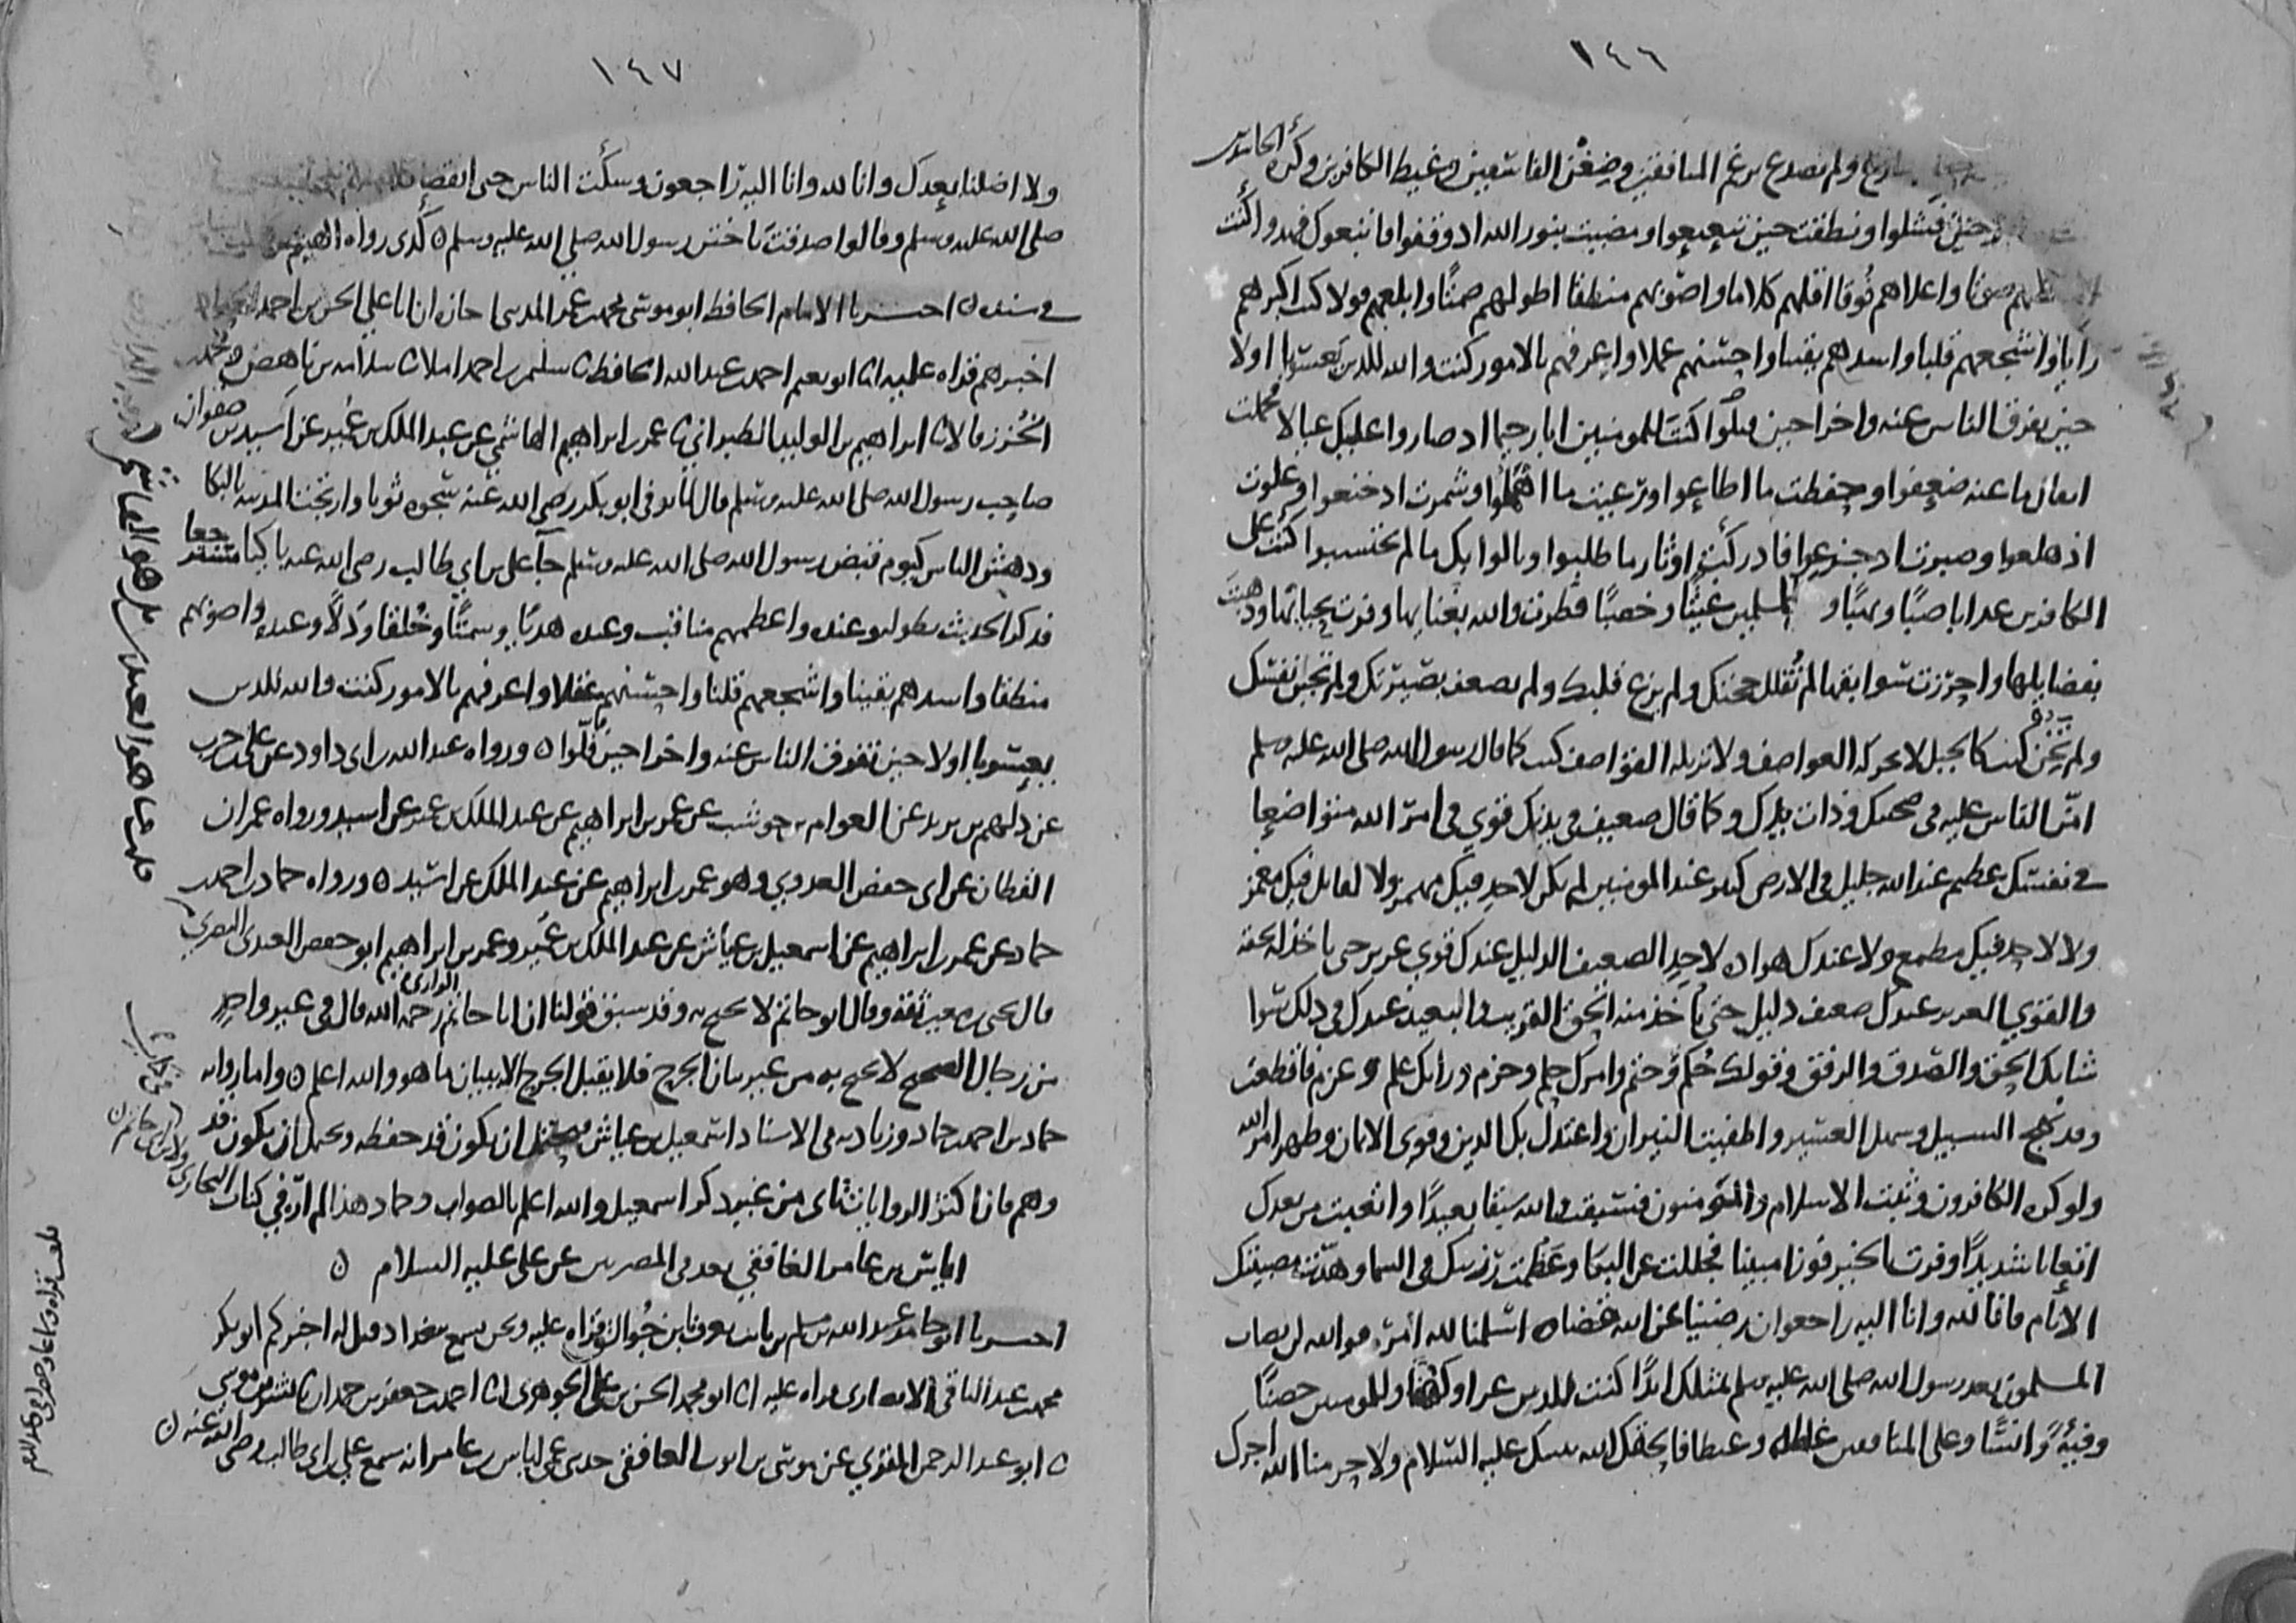 ١٤٦
ولم تصدع برغم المنافقين وضغن الفاسقين وغيظ الكافرين وكره الحاسدين
حين فشلوا ونطقت حين تتعتعوا ومضيت بنور الله اذ وقفوا فاتبعوك فهدوا كنت
صوتا واعلاهم فوقا اقلهم كلاما واصوبهم منطقا اطولهم صمتا وابلغهم قولا كنت اكبرهم
رأيا واشجعهم قلبا واشدهم يقينا واحسنهم عملا واعرفهم بالامور كنت والله للدين يعسوبا اولا
حين تفرق الناس عنه واخرا حين فلوا كنت للمومنين ابا رحيما اذ صاروا عليك عيالا فحملت
اثقال ما عنه ضعفوا وحفظت ما اضاعوا ورعيت ما اهملوا وشمرت اذ خنعوا وعلوت
اذ هلعوا وصبرت اذ جزعوا فادركت اوتار ما طلبوا ونالوا بك ما لم يحتسبوا كنت على
الكافرين عذابا صبا ونهبا وللمسلمين غيثا وخصبا فطرت والله بغنايها وفزت بحبائها وذهبت
بفضايلها واحرزت سوابقها لم تفلل حجتك ولم يزع قلبك ولم تضعف بصيرتك ولم تجبن نفسك
ولم تخن كنت كالجبل لا تحركه العواصف ولا تزيله القواصف كنت كما قال رسول الله صلى الله عليه وسلم
امن الناس عليه في صحبتك وذات يدك وكما قال ضعيف في بدنك قوي في امر الله متواضعا
في نفسك عظيم عند الله جليل في الارض كبير عند المومنين لم يكن لاحد فيك مهمز ولا لقايل فيك مغمز
ولا لاحد فيك مطمع ولا عندك هوادة لاحد الضعيف الذليل عندك قوي عزيز حتى تاخذ له بحقه
والقوي العزيز عندك ضعيف ذليل حتى تاخذ منه الحق القريب والبعيد عندك في ذلك سوا
شانك الحق والصدق والرفق وقولك حكم وحتم وامرك حلم وحزم ورايك علم وعزم فاقلعت
وقد نهج السبيل وسهل العسير واطفيت النيران واعتدل بك الدين وقوي الايمان وظهر امر الله
ولو كره الكافرون وثبت الاسلام والمومنون فسبقت والله سبقا بعيدا واتعبت من بعدك
اتعابا شديدا وفزت بالخير فوزا مبينا فجللت عن البكا وعظمت رزيتك في السما وهدت مصيبتك
الانام فانا لله وانا اليه راجعون رضينا عن الله قضاه وسلمنا لله امره فوالله لن يصاب
المسلمون بعد رسول الله صلى الله عليه وسلم بمثلك ابدا كنت للدين عزا وكهفا وللمومنين حصنا
وفئة وانسا وعلى المنافقين غلظة وغيظا فالحقك الله بنبيك عليه السلام ولا حرمنا الله اجرك
١٤٧
ولا اضلنا بعدك وانا لله وانا اليه راجعون وسكت الناس حتى انقضى
صلى الله عليه وسلم وقالوا صدقت يا ختن رسول الله صلى الله عليه وسلم ○ كذى رواه الهيثم
في مسنده ○ اخبرنا الامام الحافظ ابو موسى محمد بن عمر المديني ان ابا علي الحسن بن احمد الحداد
اخبرهم قراه عليه انا ابو نعيم احمد بن عبد الله الحافظ نا سليمن بن احمد املا نا سلامه بن ناهض ومحمد
الخزز قالا نا ابراهيم بن الوليد الطبراني نا عمر بن ابراهيم الهاشمي عن عبد الملك بن عمير عن اسيد بن صفوان
صاحب رسول الله صلى الله عليه وسلم قال لما توفي ابو بكر رضي الله عنه سجوه ثوبا وارتجت المدينه بالبكا
ودهش الناس كيوم قبض رسول الله صلى الله عليه وسلم جا علي بن ابي طالب رضي الله عنه باكيا مسترجعا
فذكر الحديث بطوله وعنده واعظمهم مناقب وعنده هديا وسمتا وخلقا ودلا وعنده واصوبهم
منطقا واشدهم يقينا واشجعهم قلبا واحسنهم عقلا واعرفهم بالامور كنت والله للدين
يعسوبا اولا حين تفرق الناس عنه واخرا حين فلوا ○ ورواه عبد الله بن ابي داود عن علي بن حرب
عن دلهم بن يزيد عن العوام بن حوشب عن عمر بن ابراهيم عن عبد الملك بن عمير عن اسيد ورواه عمران
القطان عن ابي حفص العدوي وهو عمر بن ابراهيم عن عبد الملك عن اسيد ○ ورواه حماد بن احمد بن
حماد عن عمر بن ابراهيم عن اسمعيل بن عياش عن عبد الملك بن عمير وعمر بن ابراهيم ابو حفص العبدي البصري
قال يحيى بن معين ثقة وقال ابو حاتم لا يحتج به وقد سبق قولنا ان ابا حاتم الرازي رحمه الله قال في غير واحد
من رجال الصحيح لا يحتج به من غير بيان الجرح فلا يقبل الجرح الا ببيان ما هو والله اعلم ○ واما رواية
حماد بن احمد بن حماد وزيادته في الاسناد اسمعيل بن عياش فيحتمل ان يكون قد حفظه ويحتمل ان يكون قد
وهم فان اكثر الروايات تاتي من غير ذكر اسمعيل والله اعلم بالصواب وحماد هذا لم اره في كتاب البخاري
ولا ابن ابي حاتم ○
اياس بن عامر الغافقي يعد في المصريين عن علي عليه السلام ○
اخبرنا ابو حامد عبد الله بن مسلم بن ثابت يعرف بابن جوالق قراه عليه ونحن نسمع ببغداد قيل له اخبركم ابو بكر
محمد بن عبد الباقي الانصاري قراه عليه انا ابو محمد الحسن بن علي الجوهري انا احمد بن جعفر بن حمدان نا بشر بن موسى
نا ابو عبد الرحمن المقري عن موسى بن ايوب الغافقي حدثني عمي اياس بن عامر انه سمع علي بن ابي طالب رضي الله عنه ○